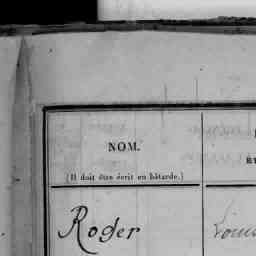 NOM.
(Il doit être écrit en bâtarde.)
Roger